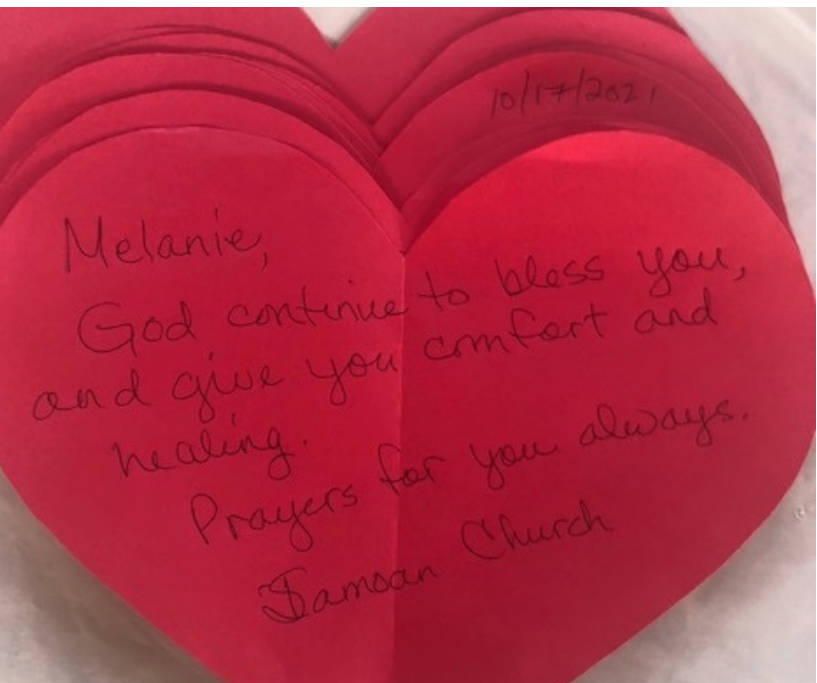 10/17/2021
Melanie,
God continue to bless you,
and give you comfort and
healing.
Prayers for you always.
Samoan Church